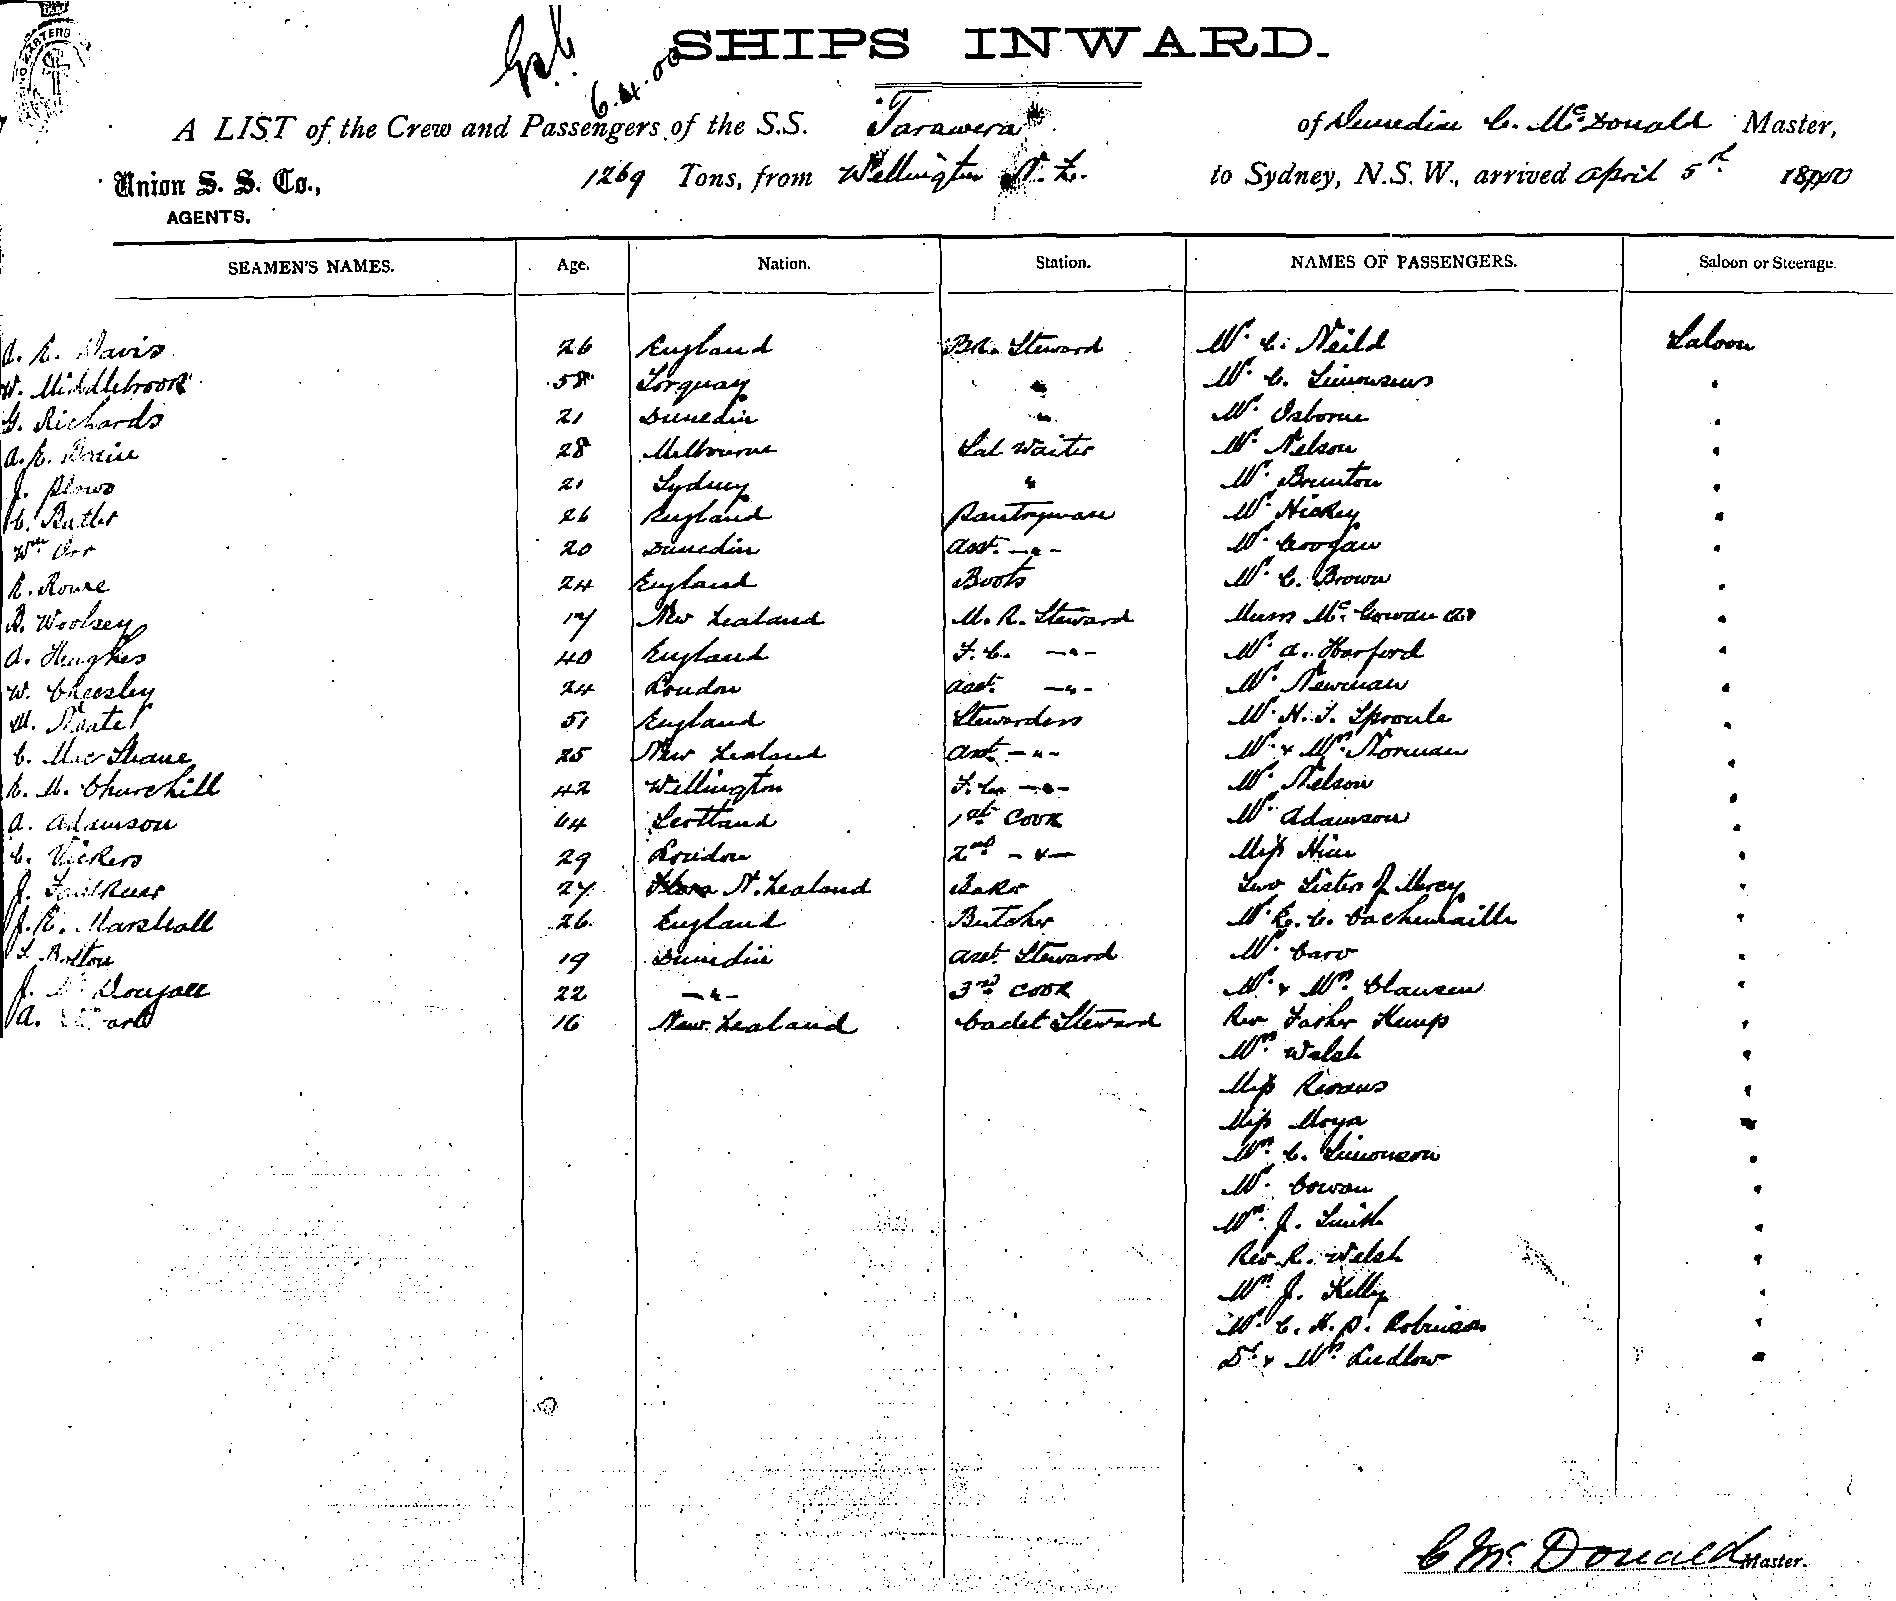 SHIPS INWARD.
6.4.00
A LIST of the Crew and Passengers of the S.S. Tarawera of Dunedin C. McDonald Master,
Union S. S. Co., 1269 Tons, from Wellington N.Z. to Sydney, N.S.W., arrived April 5th 1900
AGENTS.
SEAMEN'S NAMES. Age. Nation. Station. NAMES OF PASSENGERS. Saloon or Steerage.
Davis 26 England Bk. Steward Mr. C. Neild Saloon
W. Middlebrook 58 Torquay " Mr. C. Simonsens "
G. Richards 21 Dunedin " Mr. Osborne "
A. E. 28 Melbourne Sal Waiter Mr. Nelson "
J. 21 Sydney " Mr. Brunton "
C. Butler 26 England Pantryman Mr. Hickey "
Wm Orr 20 Dunedin Asst. -"- Mr. Coogan "
R. Rowe 24 England Boots Mr. C. Brown "
R. Woolsey 17 New Zealand M. R. Steward McGowan "
A. Hughes 40 England F. C. -"- Mr. A. Harford "
W. Cheesley 24 London Asst. -"- Mr. Newman "
M. Neate 51 England Stewardess Mr. H. J. Sproule "
C. MacShane 25 New Zealand Asst. -"- Mr. & Mrs. Norman "
E. M. Churchill 42 Wellington F. C. -"- Mr. Nelson "
A. Adamson 44 Scotland 1st Cook Mr. Adamson "
C. Vickers 29 London 2nd -"- Miss "
J. Faulkner 27 N. Zealand Baker Two Sisters of Mercy "
J. E. Marshall 26 England Butcher Mr. E. C. "
Bolton 19 Dunedin Asst. Steward Mr. Caro "
J. McDougall 22 -"- 3rd Cook Mr. & Mrs. Clausen "
A. 16 New Zealand Cadet Steward Rev Father Kemp "
Mrs. Walsh "
Miss "
Miss Moya "
Mrs. C. Simonson "
Mr. Cowan "
Mrs. J. Smith "
Rev R. Welsh "
Mrs. J. Kelly "
Mr. C. H. P. Robinson "
Dr. & Mrs. Ludlow "
C McDonald Master.